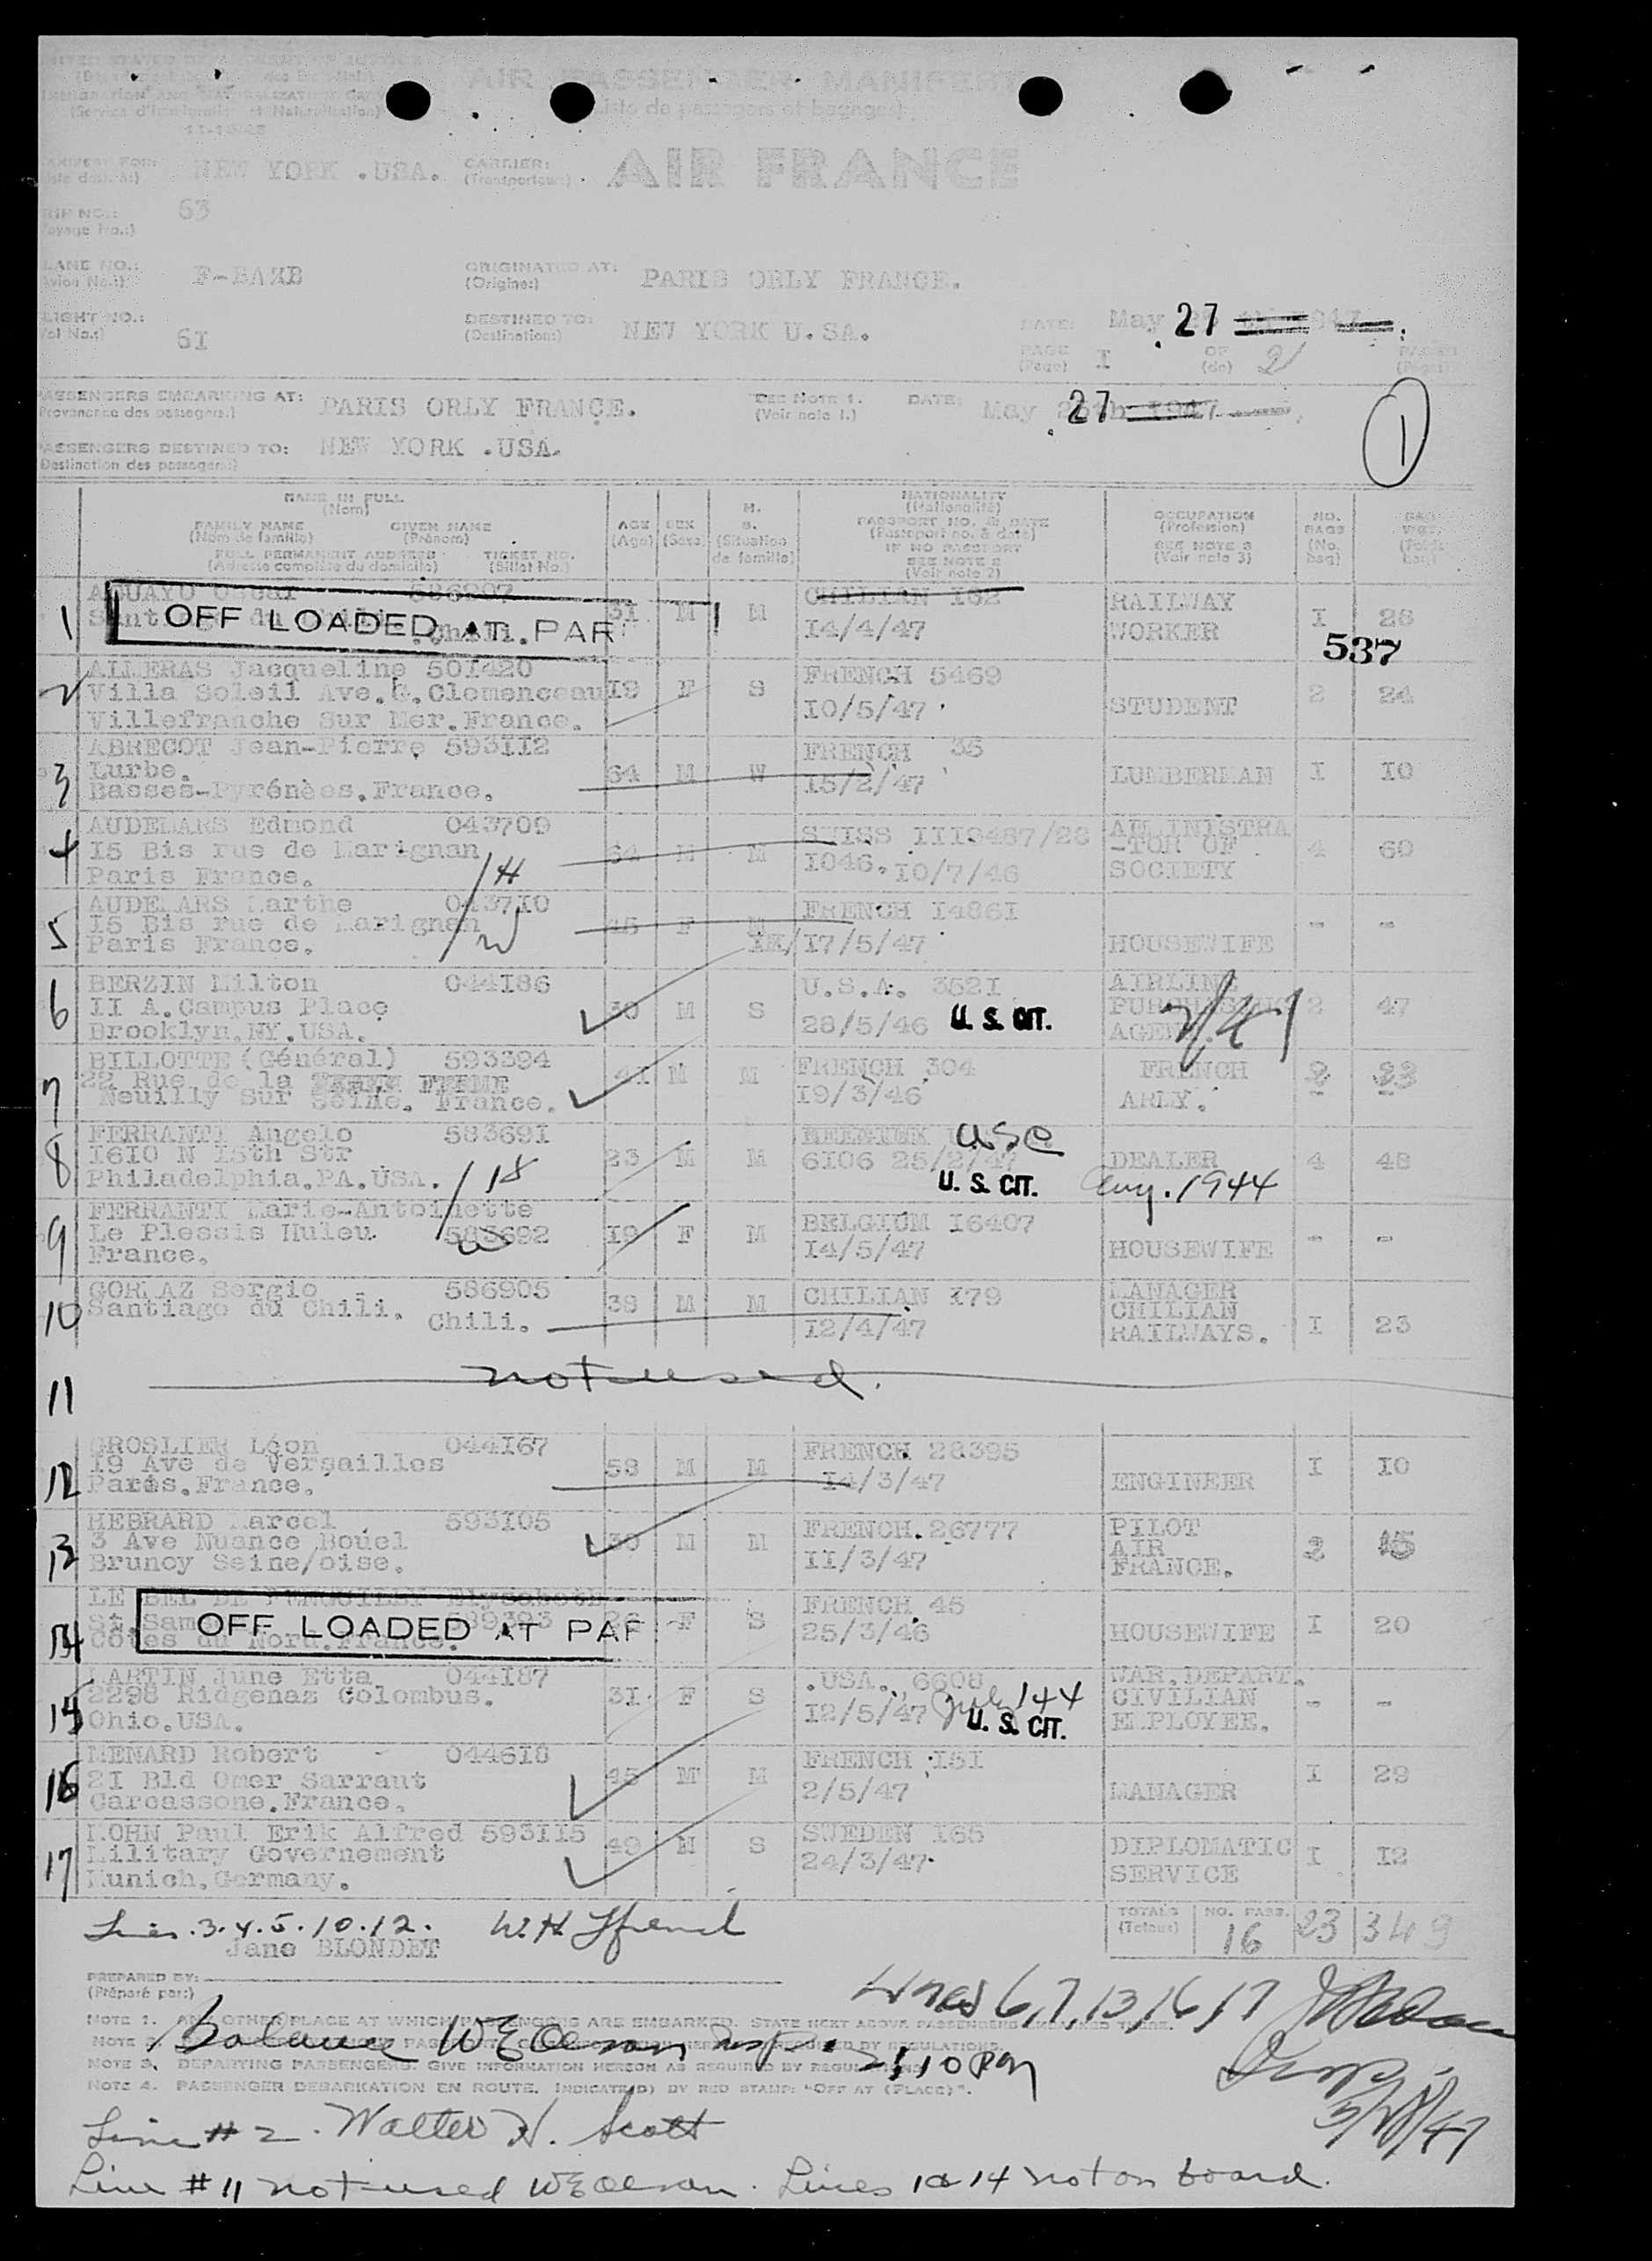 UNITED STATES DEPARTMENT OF JUSTICE
AIR PASSENGER MANIFEST
IMMIGRATION AND NATURALIZATION
(Liste de passagers et bagages)
(Service d'Immigration et Naturalisation)
NEW YORK .USA.
CARRIER:
(Transporteur:)
AIR FRANCE
TRIP NO.: 63
(Voyage No.:)
PLANE NO.: F-BAXB
(Avion No.:)
ORIGINATED AT: PARIS ORLY FRANCE.
(Origine:)
FLIGHT NO.: 61
(Vol No.:)
DESTINED TO: NEW YORK U.SA.
(Destination:)
DATE: May 27
PAGE I OF 2 PAGES
(Page) (de) (Pages)
PASSENGERS EMBARKING AT: PARIS ORLY FRANCE.
(Provenance des passagers:)
SEE NOTE 1.
(Voir note 1.)
DATE: May 27 1947
1
PASSENGERS DESTINED TO: NEW YORK .USA.
(Destination des passagers:)
NAME IN FULL
(Nom)
FAMILY NAME GIVEN NAME
(Nom de famille) (Prénom)
FULL PERMANENT ADDRESS TICKET NO.
(Adresse complète du domicile) (Billet No.)
AGE
(Age)
SEX
(Sexe)
M.
S.
(Situation de famille)
NATIONALITY
(Nationalité)
PASSPORT NO. & DATE
(Passeport no. & date)
IF NO PASSPORT
SEE NOTE 2
(Voir note 2)
OCCUPATION
(Profession)
SEE NOTE 3
(Voir note 3)
NO.
BAGS
(No. bag)
1 AGUAYO 586907 31 M M CHILIAN 162 RAILWAY I 28
OFF LOADED AT PAR
14/4/47 WORKER
537
2 ALLERAS Jacqueline 501420 19 F S FRENCH 5469 STUDENT 2 24
Villa Soleil Ave.G.Clemenceau 10/5/47
Villefranche Sur Mer.France.
3 ABRECOT Jean-Pierre 593112 64 M W FRENCH 35 LUMBERMAN I 10
Lurbe. 15/2/47
Basses-Pyrénées.France.
4 AUDEMARS Edmond 043709 64 M M SWISS III9487/28 ADMINISTRA 4 69
15 Bis rue de Marignan 1046.10/7/46 -TOR OF
Paris France. H SOCIETY
5 AUDEMARS Marthe 043710 45 F M FRENCH 14861 HOUSEWIFE - -
15 Bis rue de Marignan 17/5/47
Paris France. W
6 BERZIN Milton 044186 30 M S U.S.A. 3521 AIRLINE 2 47
II A.Campus Place 28/5/46 U. S. CIT. AGENT
Brooklyn.NY.USA.
7 BILLOTTE (Général) 593394 41 M M FRENCH 304 FRENCH 2 23
22 Rue de la FERME 19/3/46 ARMY.
Neuilly Sur Seine. France.
8 FERRANTI Angelo 583691 23 M M USC DEALER 4 48
1610 N 15th Str 6106 25/2/47 Aug. 1944
Philadelphia.PA.USA. U. S. CIT.
9 FERRANTI Marie-Antoinette 19 F M BELGIUM 16407 HOUSEWIFE - -
Le Plessis Huleu 583692 14/5/47
France. W
10 GORMAZ Sergio 586905 38 M M CHILIAN 179 MANAGER I 23
Santiago du Chili. 12/4/47 CHILIAN
Chili. RAILWAYS.
11 not used.
12 GROSLIER Léon 044167 58 M M FRENCH 28395 ENGINEER I 10
19 Ave de Versailles 14/3/47
Paris.France.
13 HEBRARD Marcel 593105 39 M M FRENCH.26777 PILOT 2 15
3 Ave Nuance Bouel 11/3/47 AIR
Brunoy Seine/oise. FRANCE.
14 LE BEL DE 589393 26 F S FRENCH 45 HOUSEWIFE I 20
OFF LOADED AT PAR
25/3/46
Côtes du Nord.France.
15 MARTIN June Etta 044187 31 F S .USA. 6608 WAR.DEPART. - -
2298 Ridgenaz Colombus. 12/5/47 July 144 CIVILIAN
Ohio.USA. U. S. CIT. EMPLOYEE.
16 MENARD Robert 044618 45 M M FRENCH 151 MANAGER I 29
21 Bld Omer Sarraut 2/5/47
Carcassone.France.
17 MOHN Paul Erik Alfred 593115 49 M S SWEDEN 165 DIPLOMATIC I 12
Military Governement 24/3/47 SERVICE
Munich.Germany.
Lines.3.4.5.10.12. W.H.
TOTALS NO. PASS. 16 23 349
(Totaux)
Jane BLONDET
PREPARED BY:
(Préparé par:)
Lines 6,7,13,16,17
NOTE 1. ANY OTHER PLACE AT WHICH PASSENGERS ARE EMBARKED. STATE NEXT ABOVE PASSENGERS EMBARKED THERE.
Balance W E Olson insp. 2:10 pm
NOTE 3. DEPARTING PASSENGERS. GIVE INFORMATION HEREON AS REQUIRED BY REGULATIONS.
NOTE 4. PASSENGER DEBARKATION EN ROUTE. INDICATE(D) BY RED STAMP: "OFF AT (PLACE)".
Insp.
5/28/47
Line # 2. Walter H. Scott
Line # 11 not used W E Olson. Lines 1 & 14 not on board.